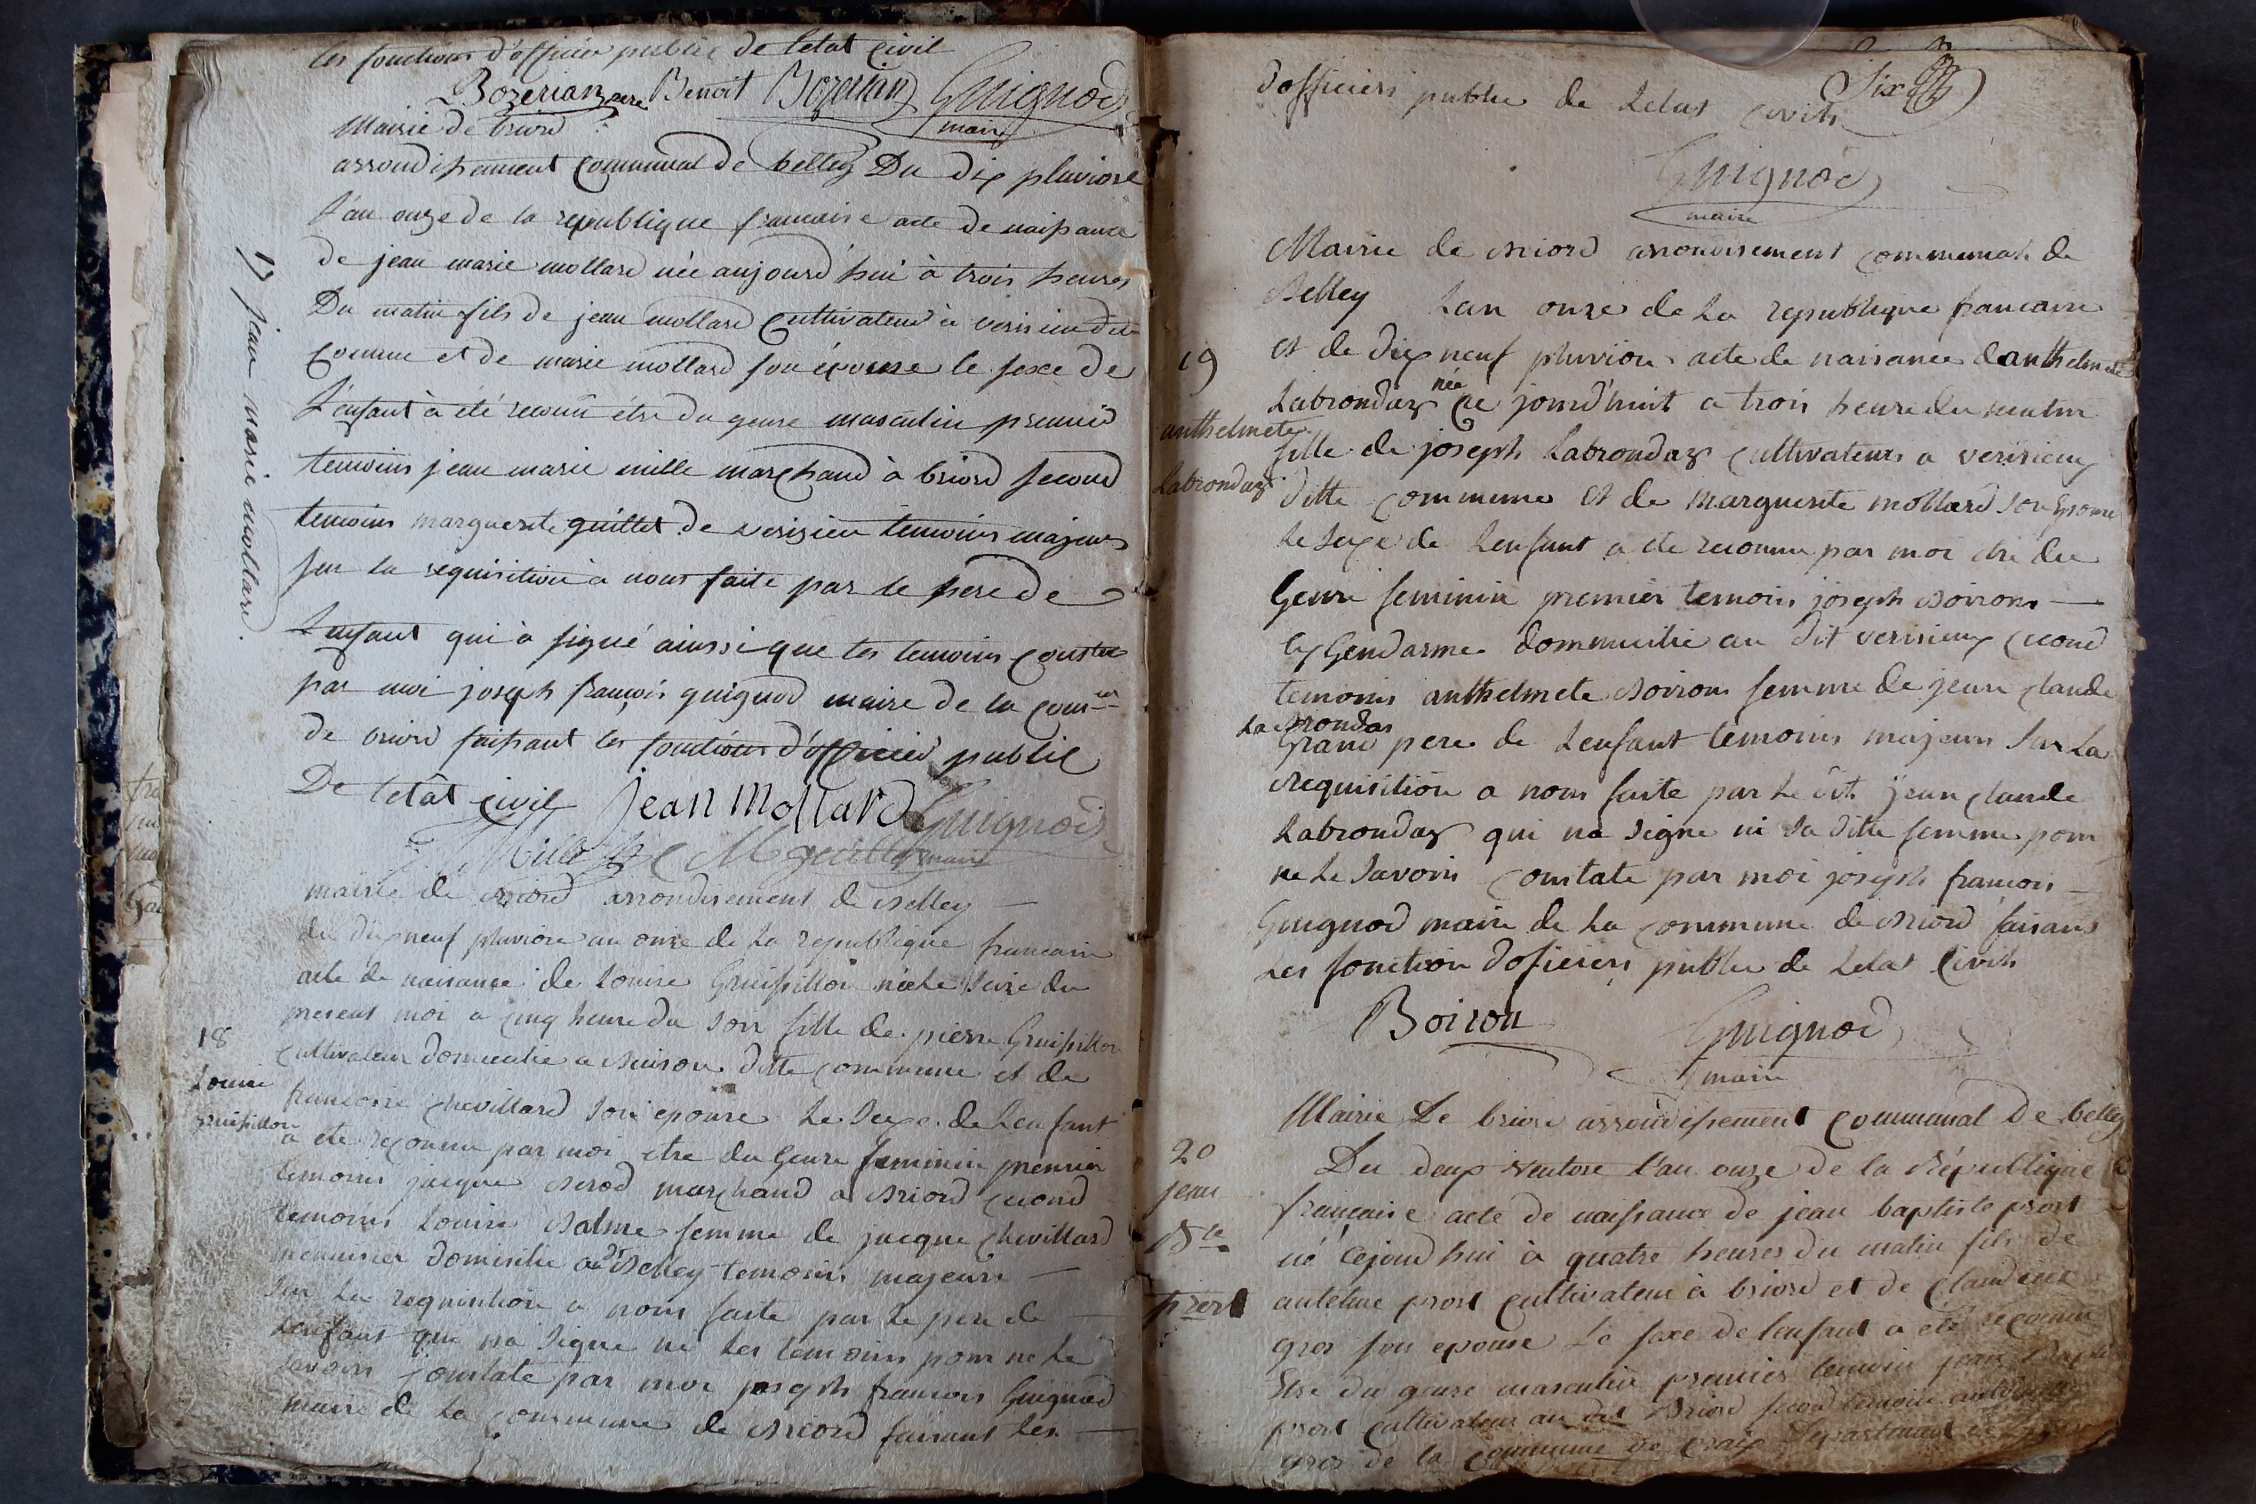 les fonctions d'officier public de l'etat civil
Bozerian pere Benoit Bozerian Guignod
maire
Mairie de briord
arrondissement communal de belley Du dix pluviose
L'an onze de la republique francaise acte de naissance
de jean marie mollard née aujourd'hui à trois heures
Du matin fils de jean mollard cultivateur à verisieu dite
comune et de marie mollard son épouse le sexe de
L'enfant à été reconû être du genre masculin premier
temoins jean marie mille marchand à briord second
temoins marguerite guillet de verisieu temoins majeurs
sur la requisition à nous faite par le pere de
L'enfant qui à signé ainssi que les temoins constaté
par moi joseph françois guignod maire de la comune
de briord faissant les fonctions d'officier public
De l'etât civil jean Mollard Guignod
Mille M guillet maire
17 jean marie mollard
mairie de Briord arrondisement de Belley
du dixneuf pluviose an onze de la republique francaise
acte de naisance de Louise Grussillon née le seize du
present moi a cinq heure du soir fille de pierre Grussillon
18
cultivateur domicilié a Buison ditte commune et de
Louise
Grusillon
francoise chevillard son epouse Le sexe de Lenfant
a ete reconnu par moi etre du Genre feminin premier
temoins jacque Berod marchand a Briord cecond
temoins Louise Balme femme de jacque chevillard
menuisier domicilié au dt Belley temoins majeurs
sur La requisition a nous faite par Le pere de
Lenfant qui na signe ni Les temoins pour ne Le
savoir constate par moi joseph francois Guignod
maire de La commune de Briord faisant Les
Six
dofficiers public de Letat civil
Guignod
maire
Mairie de Briord arrondisement communal de
Belley Lan onze de La republique francaise
19
et de dix neuf pluviose acte de naisance danthelmete
Labrondaz née ce jourd'huit a trois heure du matin
anthelmete
Labrondaz
fille de joseph Labrondaz cultivateur a verisieux
ditte commune et de marguerite mollard son Epouse
Le sexe de Lenfant a ete reconnu par moi etre du
Genre feminin premier temoin joseph Boiron
ex Gendarme dommicilié au dit verisieux cecond
temoins anthelmete Boiron femme de jean claude
La Brondas
Grand pere de Lenfant temoins majeurs sur La
Requisition a nous faite par Le dit jean claude
Labrondaz qui na signe ni sa ditte femme pour
ne Le savoir constate par moi joseph francois
Guignod maire de La commune de Briord faisans
Les fonction doficiers public de Letat Civil
Boiron Guignod
maire
Mairie De briord arrondissement communal De belley
20
jean
Bte
prost
Du deux ventose l'an onze de la République
française acte de naissance de jean baptiste prost
né cejourd'hui à quatre heures du matin fils de
antelme prost cultivateur à briord et de claudine
gros son epouse Le sexe de lenfant a été reconnu
Etre du genre masculin premier temoin jean Bapte
prost cultivateur au dit Briord second temoin
gros de la commune de craix Departement de